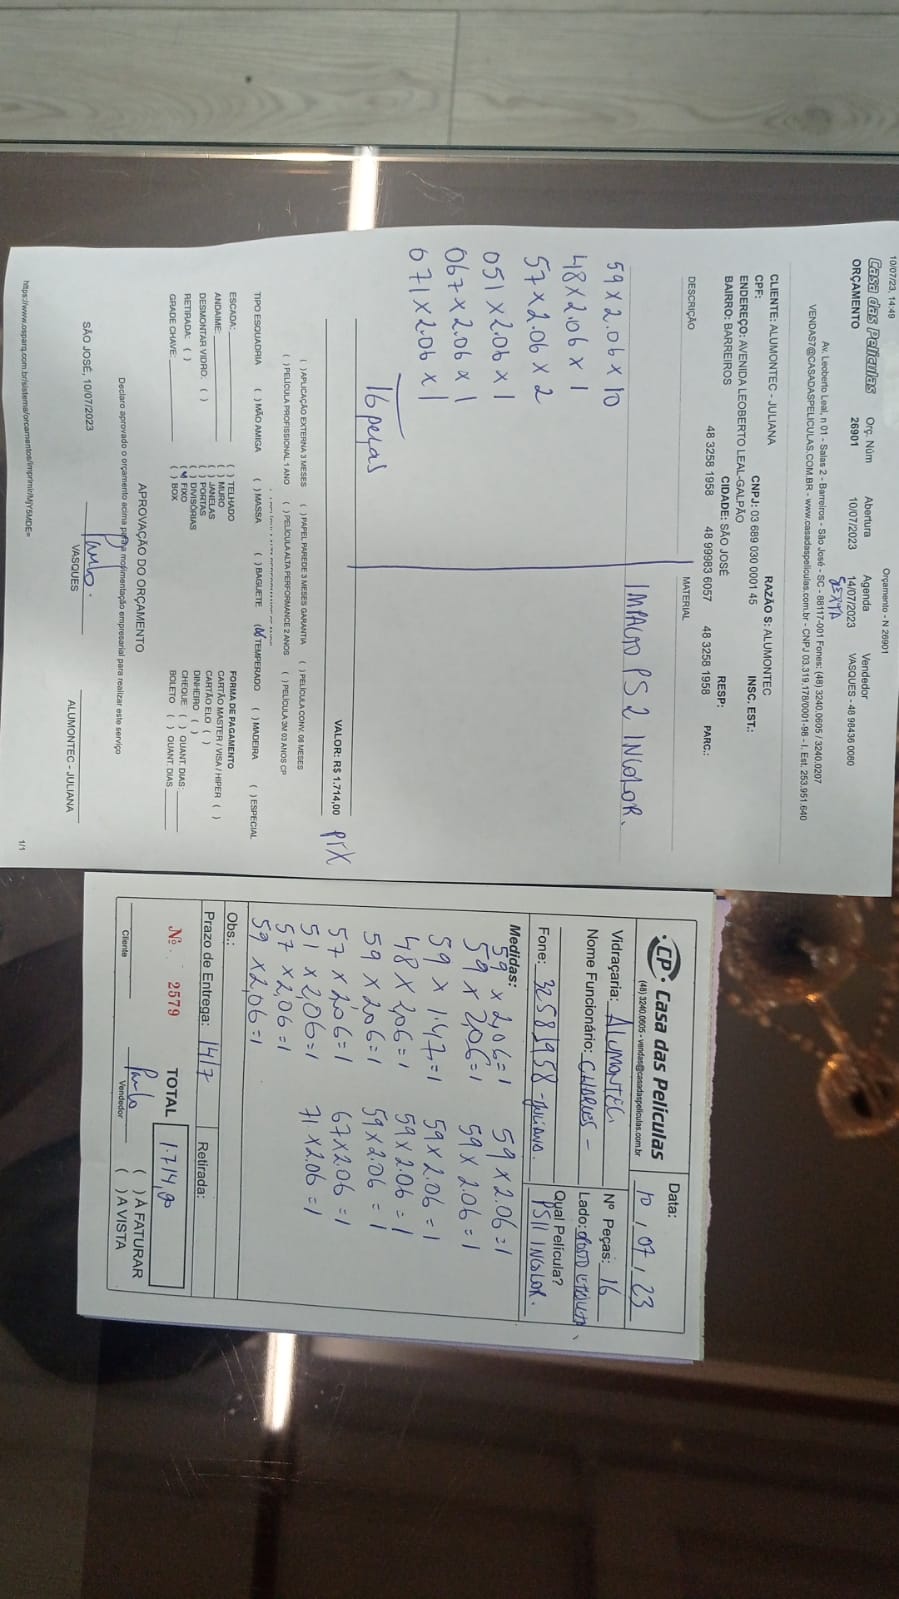 10/07/23, 14:49
Orçamento - N 26901
Casa das Películas
ORÇAMENTO
Orç. Núm
26901
Abertura
10/07/2023
Agenda
14/07/2023
SEXTA
Vendedor
VASQUES - 48 98436 0080
Av. Leoberto Leal, n 01 - Salas 2 - Barreiros - São José - SC - 88117-001 Fones: (48) 3240.0605 / 3240.0207
VENDAS7@CASADASPELICULAS.COM.BR - www.casadaspeliculas.com.br - CNPJ 03.319.178/0001-98 - I. Est. 253.951.640
CLIENTE: ALUMONTEC - JULIANA RAZÃO S: ALUMONTEC
CPF: CNPJ: 03 689 030 0001 45 INSC. EST.:
ENDEREÇO: AVENIDA LEOBERTO LEAL-GALPÃO
BAIRRO: BARREIROS CIDADE: SÃO JOSÉ RESP:
48 3258 1958 48 99983 6057 48 3258 1958 PARC.:
DESCRIÇÃO MATERIAL
59 x 2.06 x 10 IMPACTO PS 2 INCOLOR.
48 x 2.06 x 1
57 x 2.06 x 2
051 x 2.06 x 1
067 x 2.06 x 1
071 x 2.06 x 1
16 peças
VALOR: R$ 1.714,00 PIX
( ) APLICAÇÃO EXTERNA 3 MESES ( ) PAPEL PAREDE 3 MESES GARANTIA ( ) PELÍCULA CONV. 06 MESES
( ) PELÍCULA PROFISSIONAL 1 ANO ( ) PELÍCULA ALTA PERFORMANCE 2 ANOS ( ) PELÍCULA 3M 03 ANOS CP
TIPO ESQUADRIA ( ) MÃO AMIGA ( ) MASSA ( ) BAGUETE ( ) TEMPERADO ( ) MADEIRA ( ) ESPECIAL
ESCADA:
ANDAIME:
DESMONTAR VIDRO: ( )
RETIRADA: ( )
GRADE CHAVE:
( ) TELHADO
( ) MURO
( ) JANELAS
( ) PORTAS
( ) DIVISÓRIAS
( ) FIXO
( ) BOX
FORMA DE PAGAMENTO
CARTÃO MASTER / VISA / HIPER ( )
CARTÃO ELO ( )
DINHEIRO ( )
CHEQUE ( ) QUANT. DIAS:
BOLETO ( ) QUANT. DIAS
APROVAÇÃO DO ORÇAMENTO
Declaro aprovado o orçamento acima para movimentação empresarial para realizar este serviço
SÃO JOSÉ, 10/07/2023
VASQUES
ALUMONTEC - JULIANA
1/1
CP Casa das Películas
(48) 3240.0605 - vendas@casadaspeliculas.com.br
Data:
10 / 07 / 23
Vidraçaria: ALUMONTEC
Nº Peças: 16
Nome Funcionário: CHARLES -
Lado:
Fone: 32581958 - JULIANA.
Qual Película?
PS II INCOLOR.
Medidas:
59 x 2,06 = 1 59 x 2.06 = 1
59 x 2,06 = 1 59 x 2.06 = 1
59 x 1.47 = 1 59 x 2.06 = 1
48 x 2,06 = 1 59 x 2.06 = 1
59 x 2,06 = 1 59 x 2.06 = 1
57 x 2,06 = 1 67 x 2.06 = 1
51 x 2,06 = 1 71 x 2.06 = 1
57 x 2,06 = 1
59 x 2,06 = 1
Obs.:
Prazo de Entrega: 14/7 Retirada:
Nº 2579 TOTAL 1.714,00
( ) À FATURAR
( ) A VISTA
Cliente Vendedor